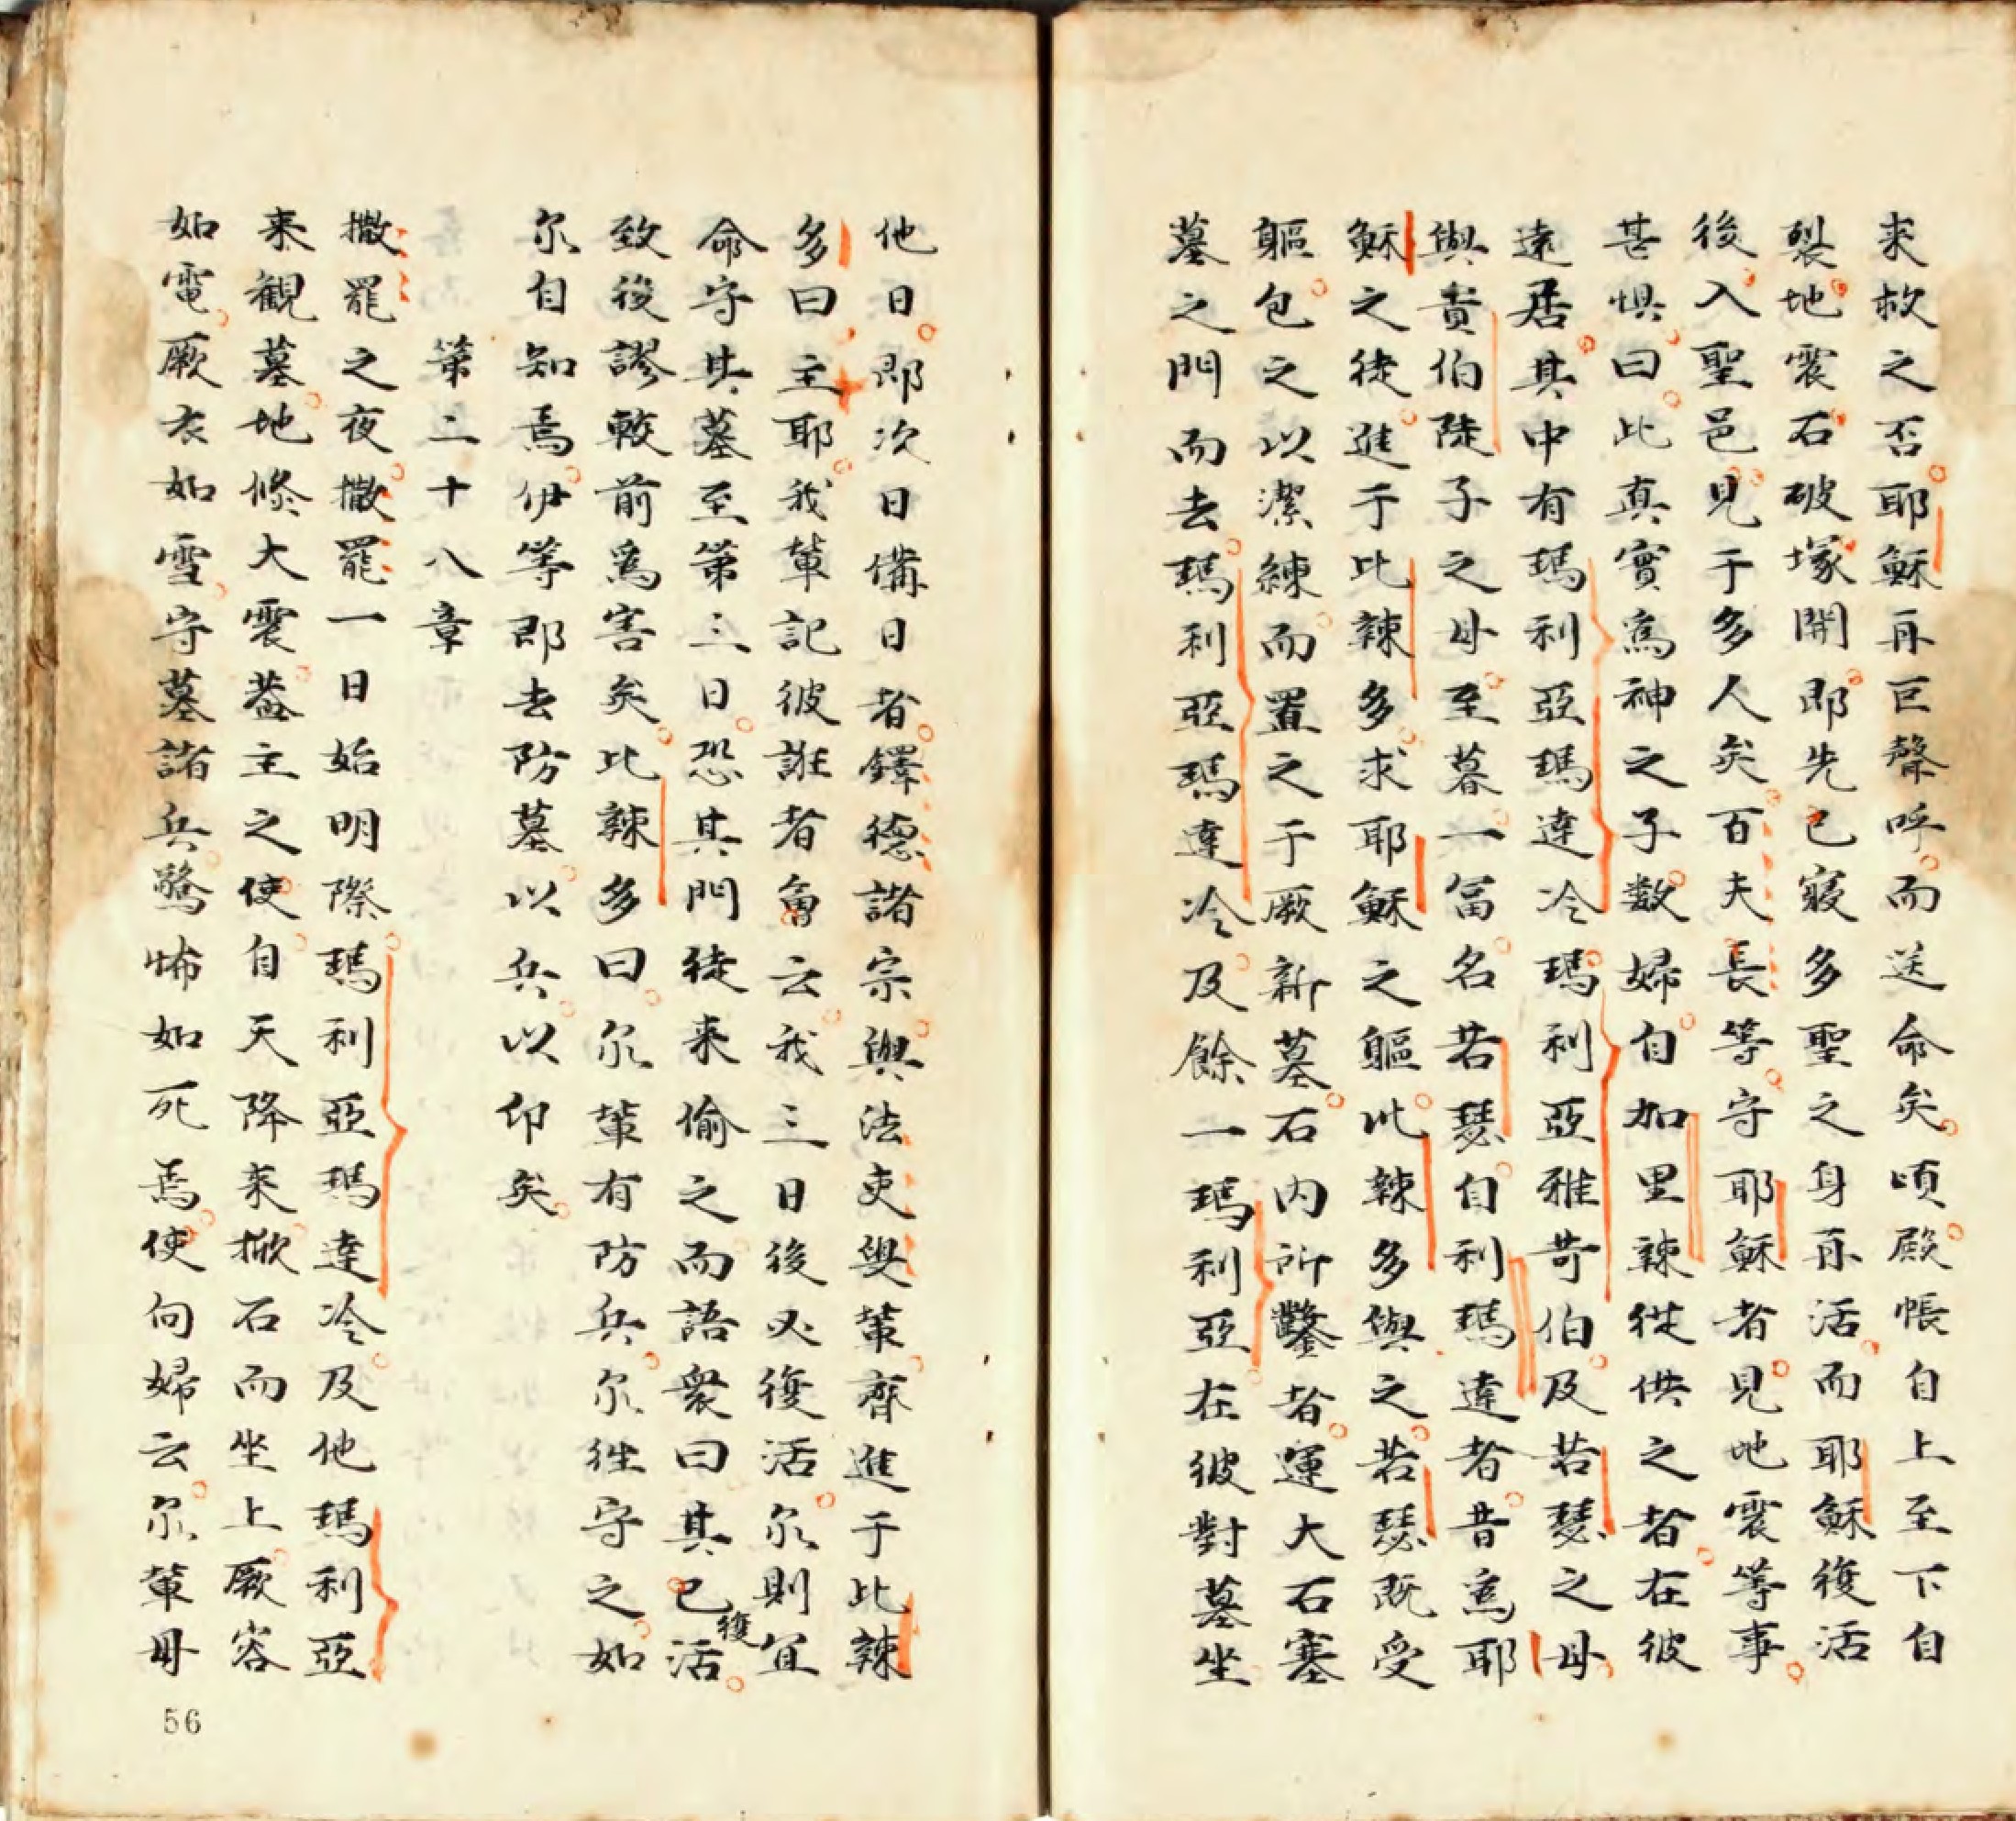 求救之否耶穌再巨聲呼而送命矣頃殿帳自上至下自
裂地震石破塚開即先已寢多聖之身再活而耶穌復活
後入聖邑見于多人矣百夫長等守耶穌者見地震等事
甚惧曰此真實為神之子數婦自加里辣從供之者在彼
遠居其中有瑪利亞瑪達冷瑪利亞雅苛伯及若瑟之母
與責伯陡子之母至暮一冨名若瑟自利瑪達者昔為耶
穌之徒進于比辣多求耶穌之軀比辣多與之若瑟既受
軀包之以潔練而置之于厥新墓石內所鑿者運大石塞
墓之門而去瑪利亞瑪達冷及餘一瑪利亞在彼對墓坐
他日即次日備日者鐸德諸宗與法吏與輩齊進于比辣
多曰主耶我輩記彼誑者甞云我三日後必復活尔則宜
命守其墓至第三日恐其門徒来偷之而語衆曰其已復活
致後謬較前爲害矣比辣多曰尔輩有防兵尔徃守之如
尔自知焉伊等即去防墓以兵以印矣
第二十八章
撒罷之夜撒罷一日始明際瑪利亞瑪達冷及他瑪利亞
来觀墓地倏大震葢主之使自天降来掀石而坐上厥容
如電厥衣如雪守墓諸兵驚怖如死焉使向婦云尔輩毋
56